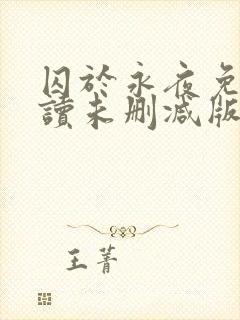 囚於永夜免
讀未删减版
王菁